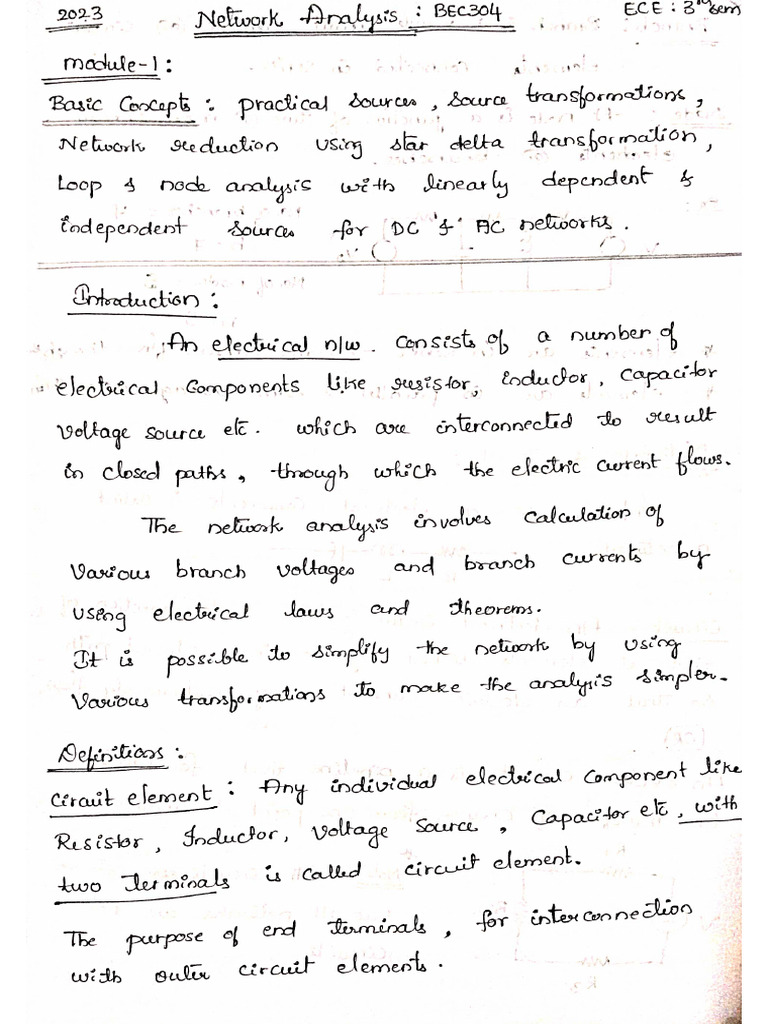 2023 Network Analysis : BEC304 ECE : 3rd sem
Module-1 :
Basic Concepts : practical sources, source transformations,
Network reduction using star delta transformation,
Loop & node analysis with linearly dependent &
independent sources for DC & AC networks.
Introduction :
An electrical n/w. consists of a number of
electrical components like resistor, inductor, capacitor
voltage source etc. which are interconnected to result
in closed paths, through which the electric current flows.
The network analysis involves calculation of
various branch voltages and branch currents by
using electrical laws and theorems.
It is possible to simplify the network by using
various transformations to make the analysis simpler.
Definitions :
Circuit element : Any individual electrical component like
Resistor, Inductor, Voltage Source, Capacitor etc, with
two terminals is called circuit element.
The purpose of end terminals, for interconnection
with outer circuit elements.